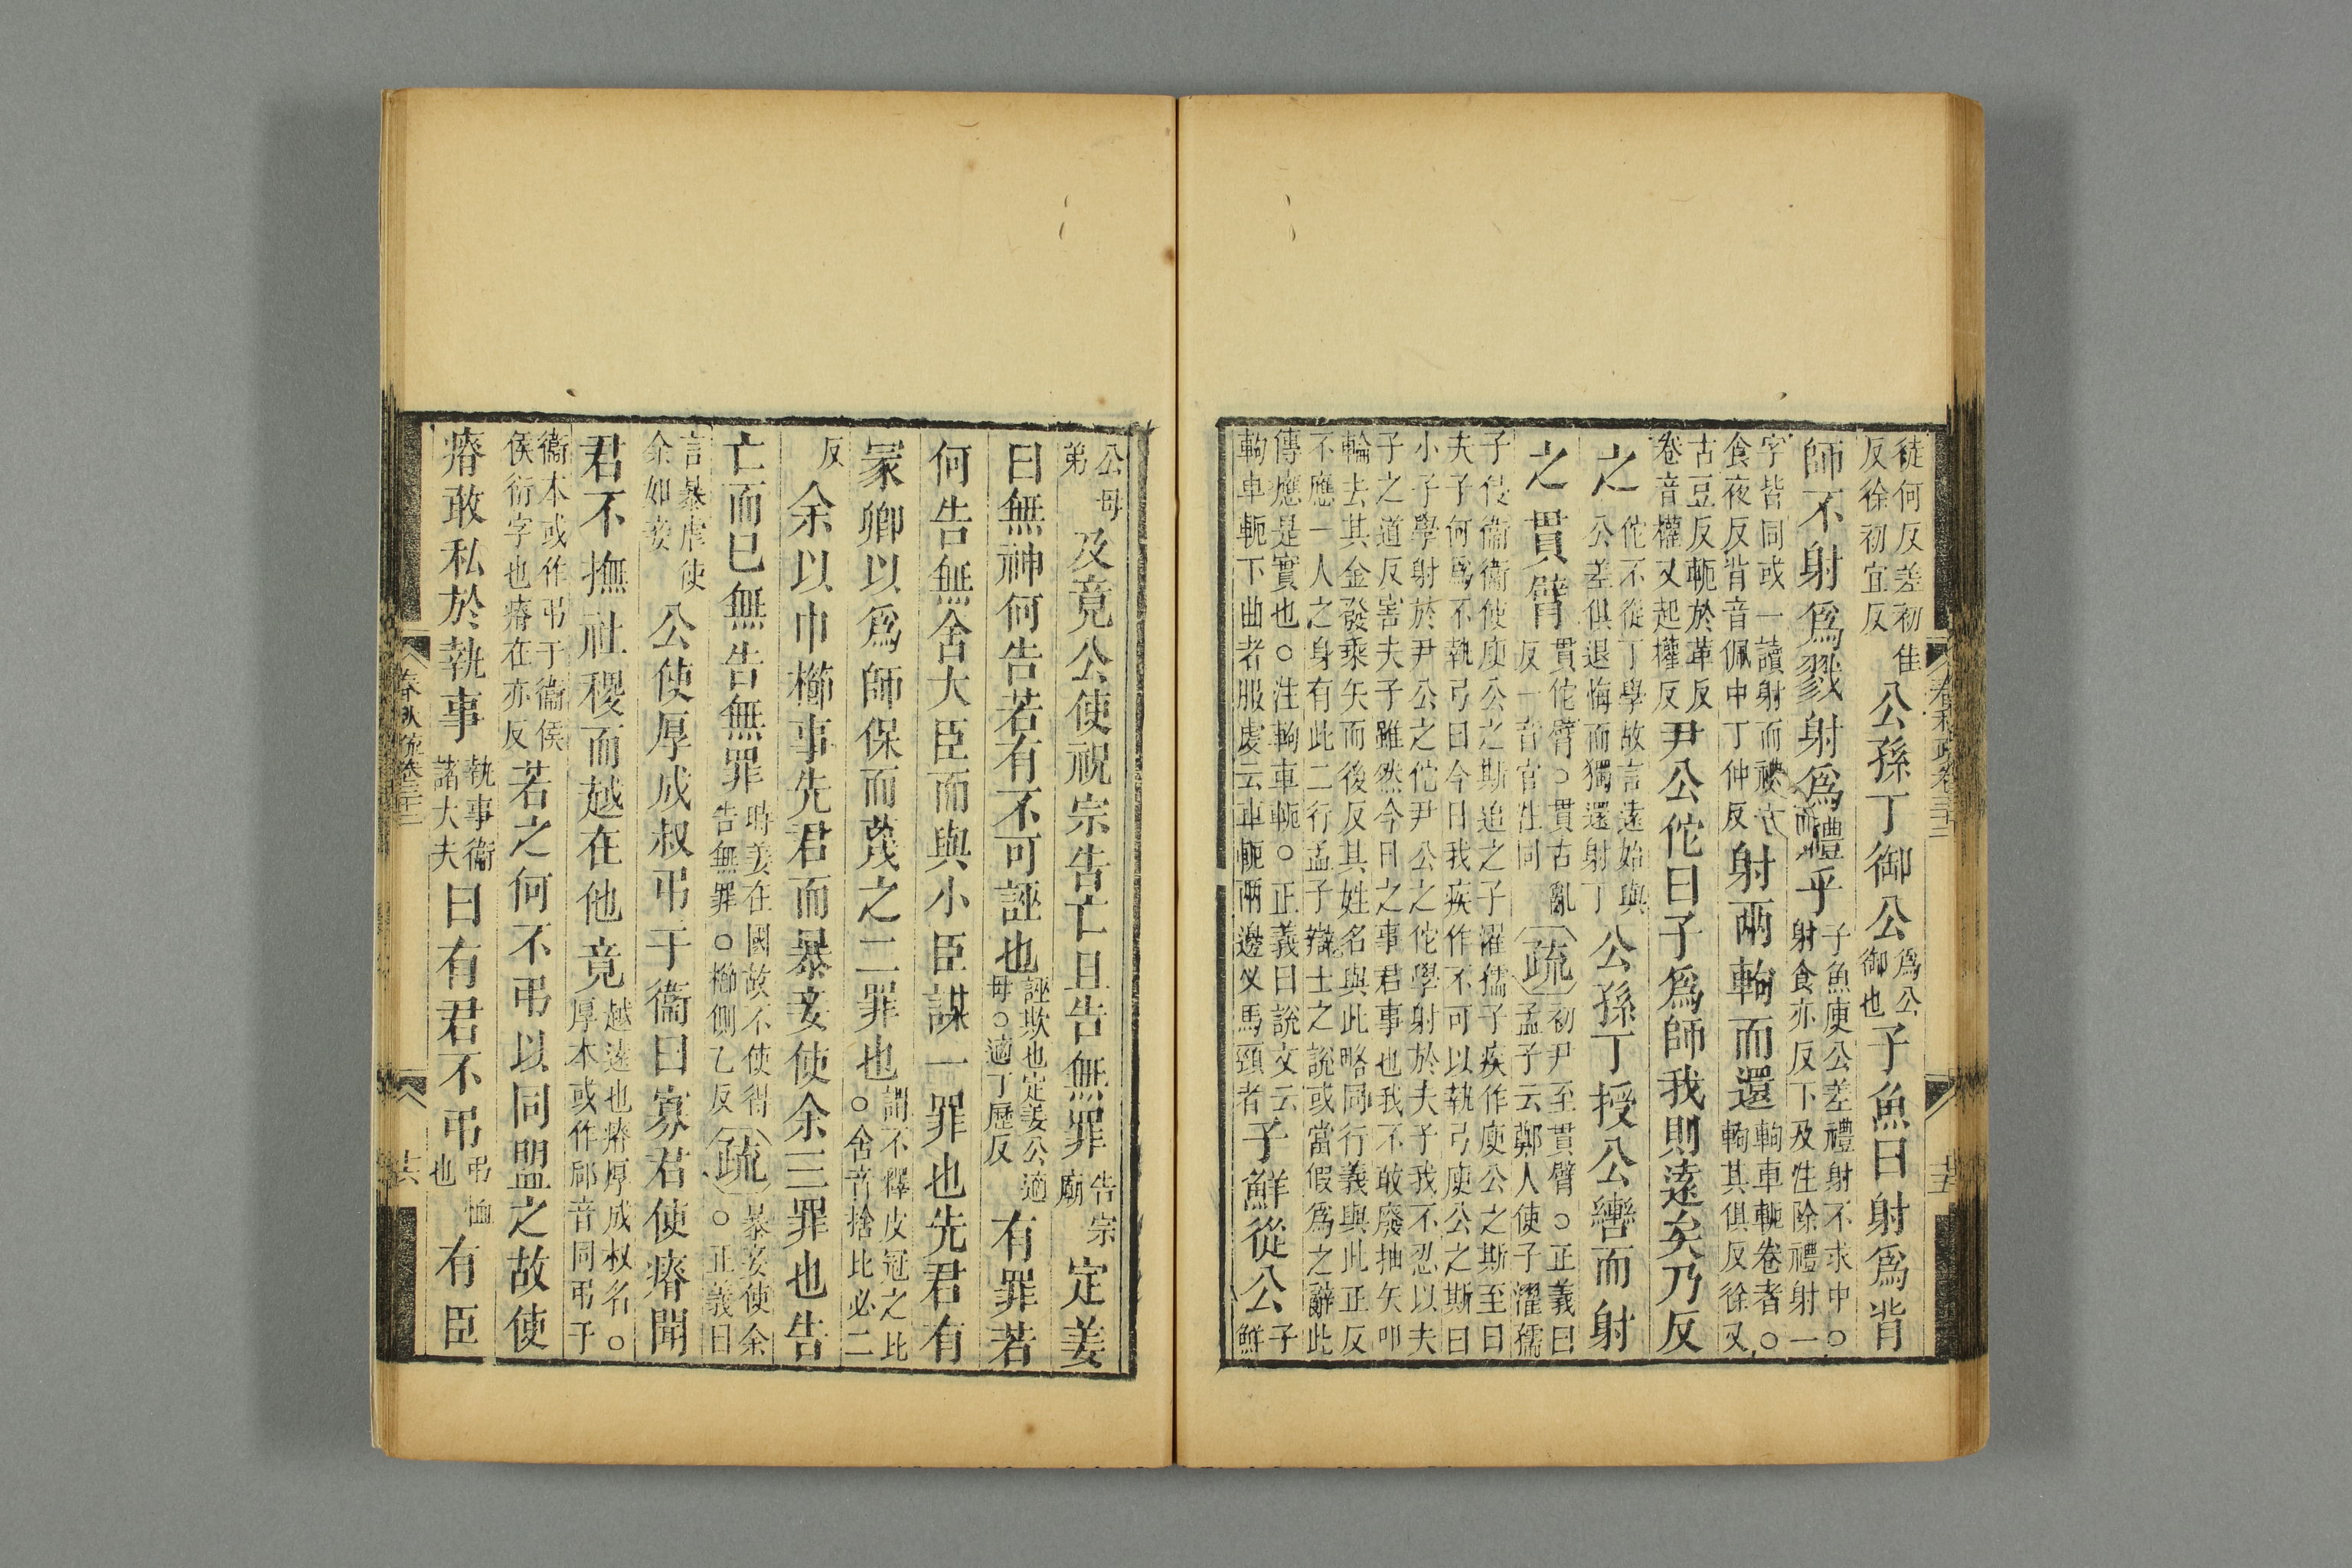 徒何反差初佳
反徐初宜反
公孫丁御公
爲公
御也
子魚曰射爲背
師不射爲戮射爲禮乎
子魚庾公差禮射不求中○
射食亦反下及注除禮射一
字皆同或一讀射而禮
食夜反背音佩中丁仲反
射兩軥而還
軥車軛卷者○
軥其俱反徐又
古豆反軛於革反
卷音權又起權反
尹公佗曰子爲師我則遠矣乃反
之
佗不從丁學故言遠始與
公差俱退悔而獨還射丁
公孫丁授公轡而射
之貫臂
貫佗臂○貫古亂
反一音官注同
疏
初尹至貫臂○正義曰
孟子云鄭人使子濯孺
子侵衞衞使庾公之斯追之子濯孺子疾作庾公之斯至曰
夫子何爲不執弓曰今日我疾作不可以執弓庾公之斯曰
小子學射於尹公之佗尹公之佗學射於夫子我不忍以夫
子之道反害夫子雖然今日之事君事也我不敢廢抽矢叩
輪去其金發乘矢而後反其姓名與此略同行義與此正反
不應一人之身有此二行孟子辯士之說或當假爲之辭此
傳應是實也○注軥車軛○正義曰說文云
軥車軛下曲者服虔云車軛兩邊叉馬頸者
子鮮從公
子
鮮
公母
弟
及竟公使祝宗告亡且告無罪
告宗
廟
定姜
曰無神何告若有不可誣也
誣欺也定姜公適
母○適丁歷反
有罪若
何告無舍大臣而與小臣謀一罪也先君有
冢卿以爲師保而蔑之二罪也
謂不釋皮冠之比
○舍音捨比必二
反
余以巾櫛事先君而暴妾使余三罪也告
亡而已無告無罪
時姜在國故不使得
告無罪○櫛側乙反
疏
暴妾使余
○正義曰
言暴虐使
余如妾
公使厚成叔弔于衞曰寡君使瘠聞
君不撫社稷而越在他竟
越遠也瘠厚成叔名○
厚本或作郈音同弔于
衞本或作弔于衞侯
侯衍字也瘠在亦反
若之何不弔以同盟之故使
瘠敢私於執事
執事衞
諸大夫
曰有君不弔
弔恤
也
有臣